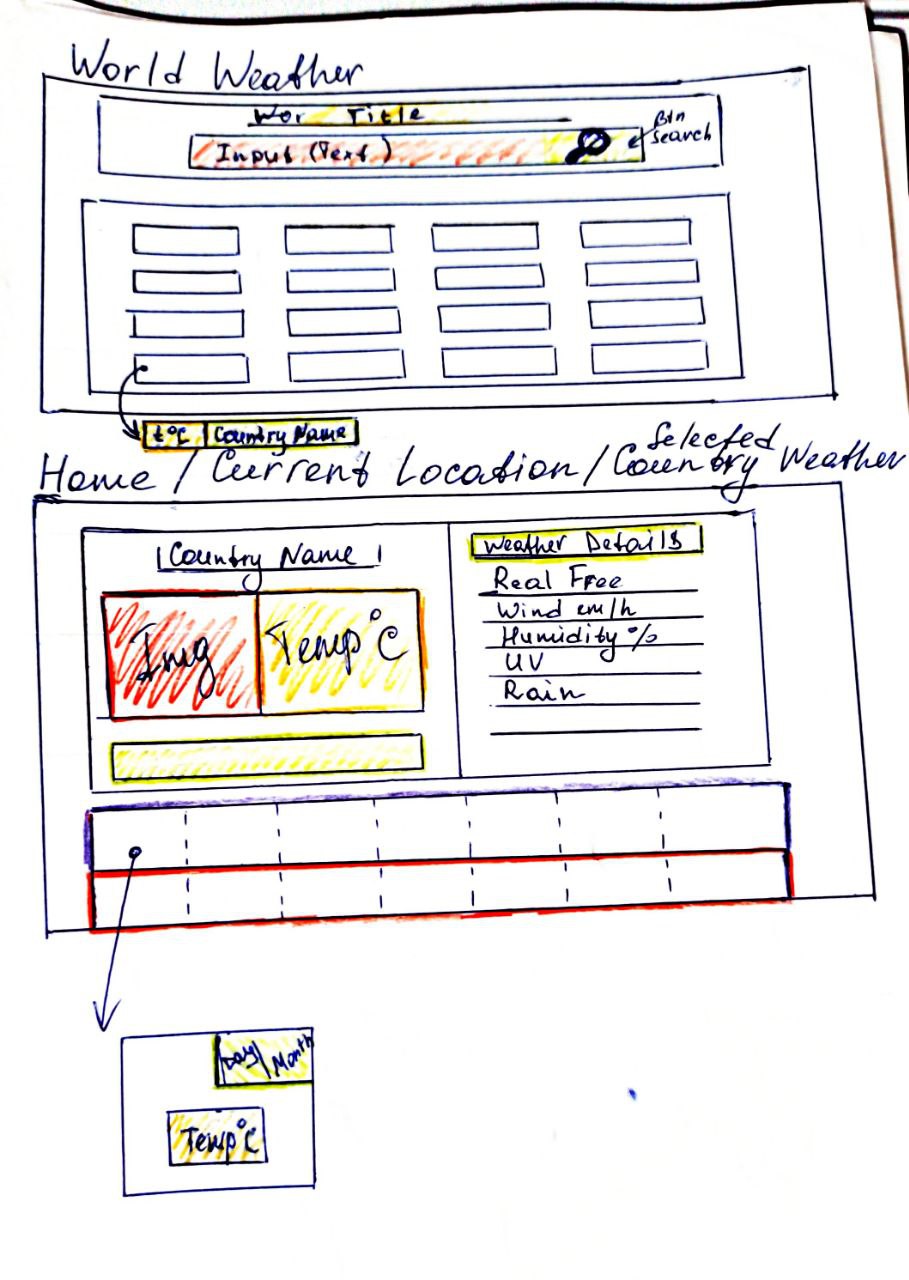 World Weather
Wor Title
Input (Text)
Btn
search
t°C Country Name
Selected
Home / Current Location / Country Weather
Country Name
Img Temp°C
Weather Details
Real Free
Wind em/h
Humidity %
UV
Rain
Day/ Month
Temp°C